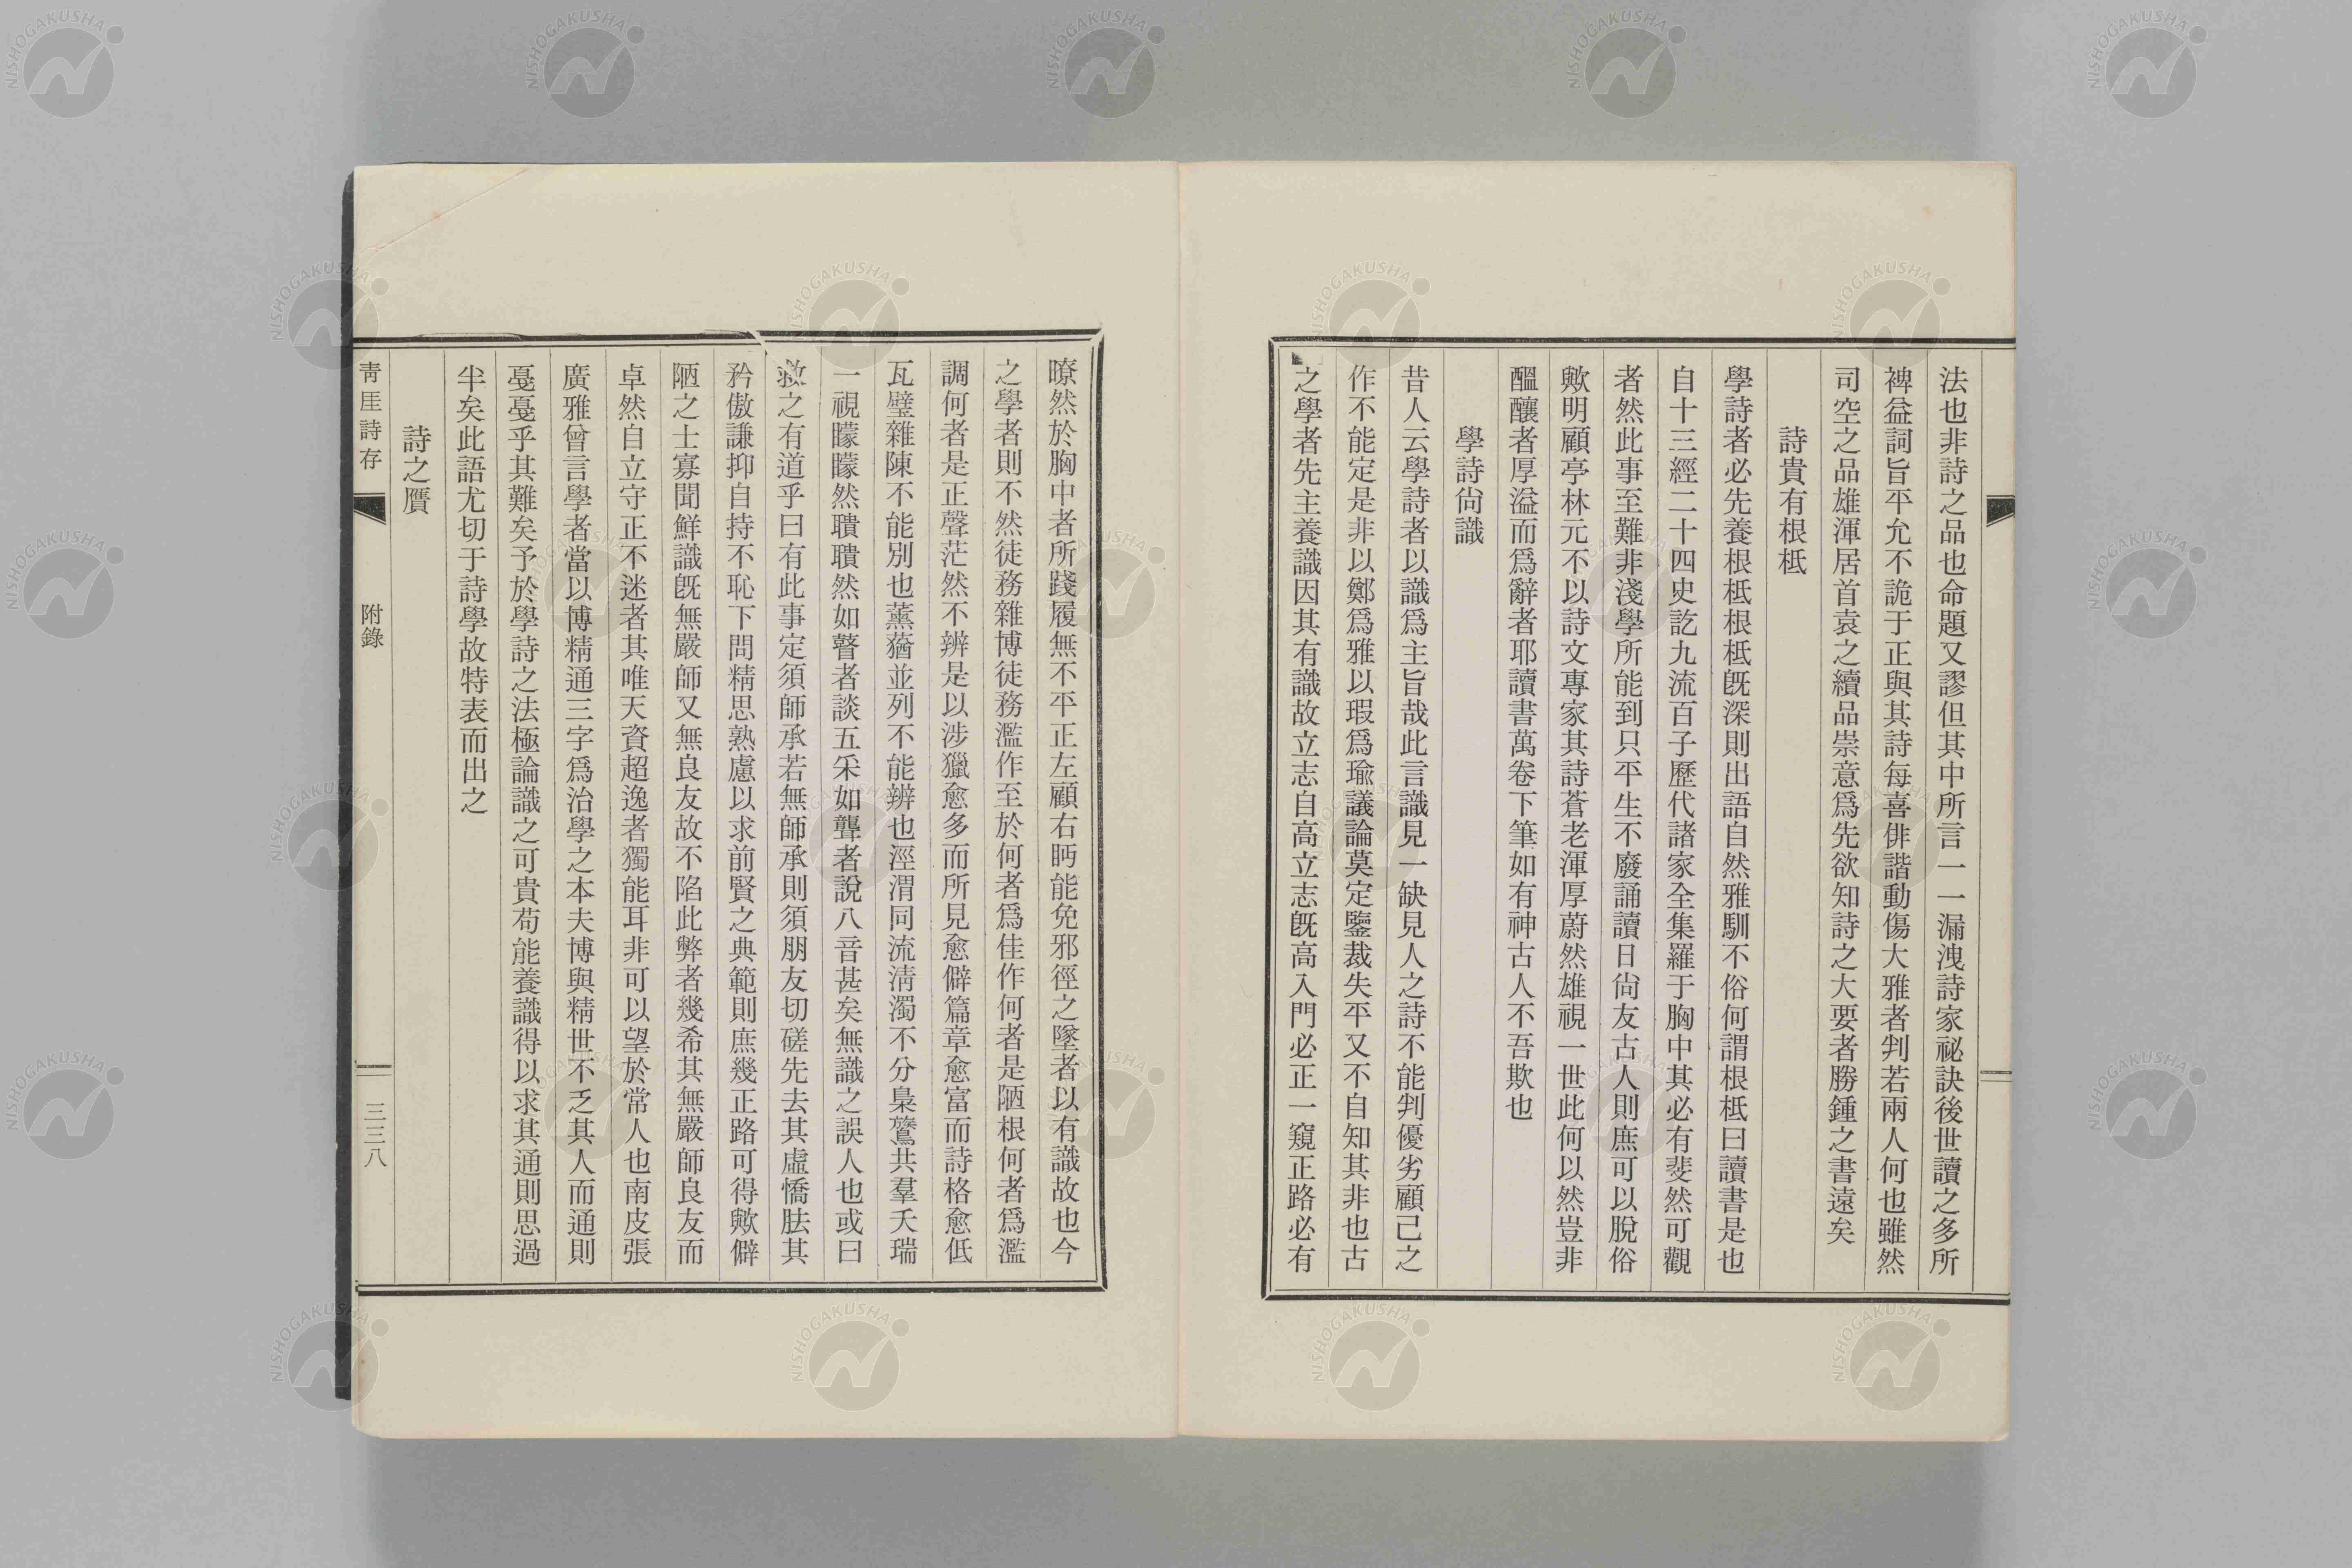 法也非詩之品也命題又謬但其中所言一一漏洩詩家祕訣後世讀之多所
裨益詞旨平允不詭于正與其詩每喜俳諧動傷大雅者判若兩人何也雖然
司空之品雄渾居首袁之續品崇意爲先欲知詩之大要者勝鍾之書遠矣
詩貴有根柢
學詩者必先養根柢根柢旣深則出語自然雅馴不俗何謂根柢曰讀書是也
自十三經二十四史訖九流百子歷代諸家全集羅于胸中其必有斐然可觀
者然此事至難非淺學所能到只平生不廢誦讀日尙友古人則庶可以脫俗
歟明顧亭林元不以詩文專家其詩蒼老渾厚蔚然雄視一世此何以然豈非
醞釀者厚溢而爲辭者耶讀書萬卷下筆如有神古人不吾欺也
學詩尙識
昔人云學詩者以識爲主旨哉此言識見一缺見人之詩不能判優劣顧己之
作不能定是非以鄭爲雅以瑕爲瑜議論莫定鑒裁失平又不自知其非也古
之學者先主養識因其有識故立志自高立志旣高入門必正一窺正路必有
暸然於胸中者所踐履無不平正左顧右眄能免邪徑之墜者以有識故也今
之學者則不然徒務雜博徒務濫作至於何者爲佳作何者是陋根何者爲濫
調何者是正聲茫然不辨是以涉獵愈多而所見愈僻篇章愈富而詩格愈低
瓦璧雜陳不能別也薰蕕並列不能辨也涇渭同流淸濁不分梟鸞共羣夭瑞
一視矇矇然聵聵然如瞽者談五采如聾者說八音甚矣無識之誤人也或曰
救之有道乎曰有此事定須師承若無師承則須朋友切磋先去其虛憍胠其
矜傲謙抑自持不恥下問精思熟慮以求前賢之典範則庶幾正路可得歟僻
陋之士寡聞鮮識旣無嚴師又無良友故不陷此弊者幾希其無嚴師良友而
卓然自立守正不迷者其唯天資超逸者獨能耳非可以望於常人也南皮張
廣雅曾言學者當以博精通三字爲治學之本夫博與精世不乏其人而通則
戞戞乎其難矣予於學詩之法極論識之可貴苟能養識得以求其通則思過
半矣此語尤切于詩學故特表而出之
詩之贋
靑厓詩存
附錄
三三八
NISHOGAKUSHA